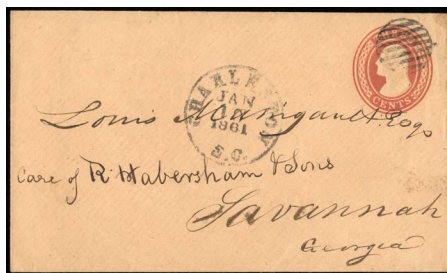 CENTS
CHARLESTON
JAN
1861
S.C.
Louis Manigault Esqr
Care of R. Habersham & Sons
Savannah
Georgia